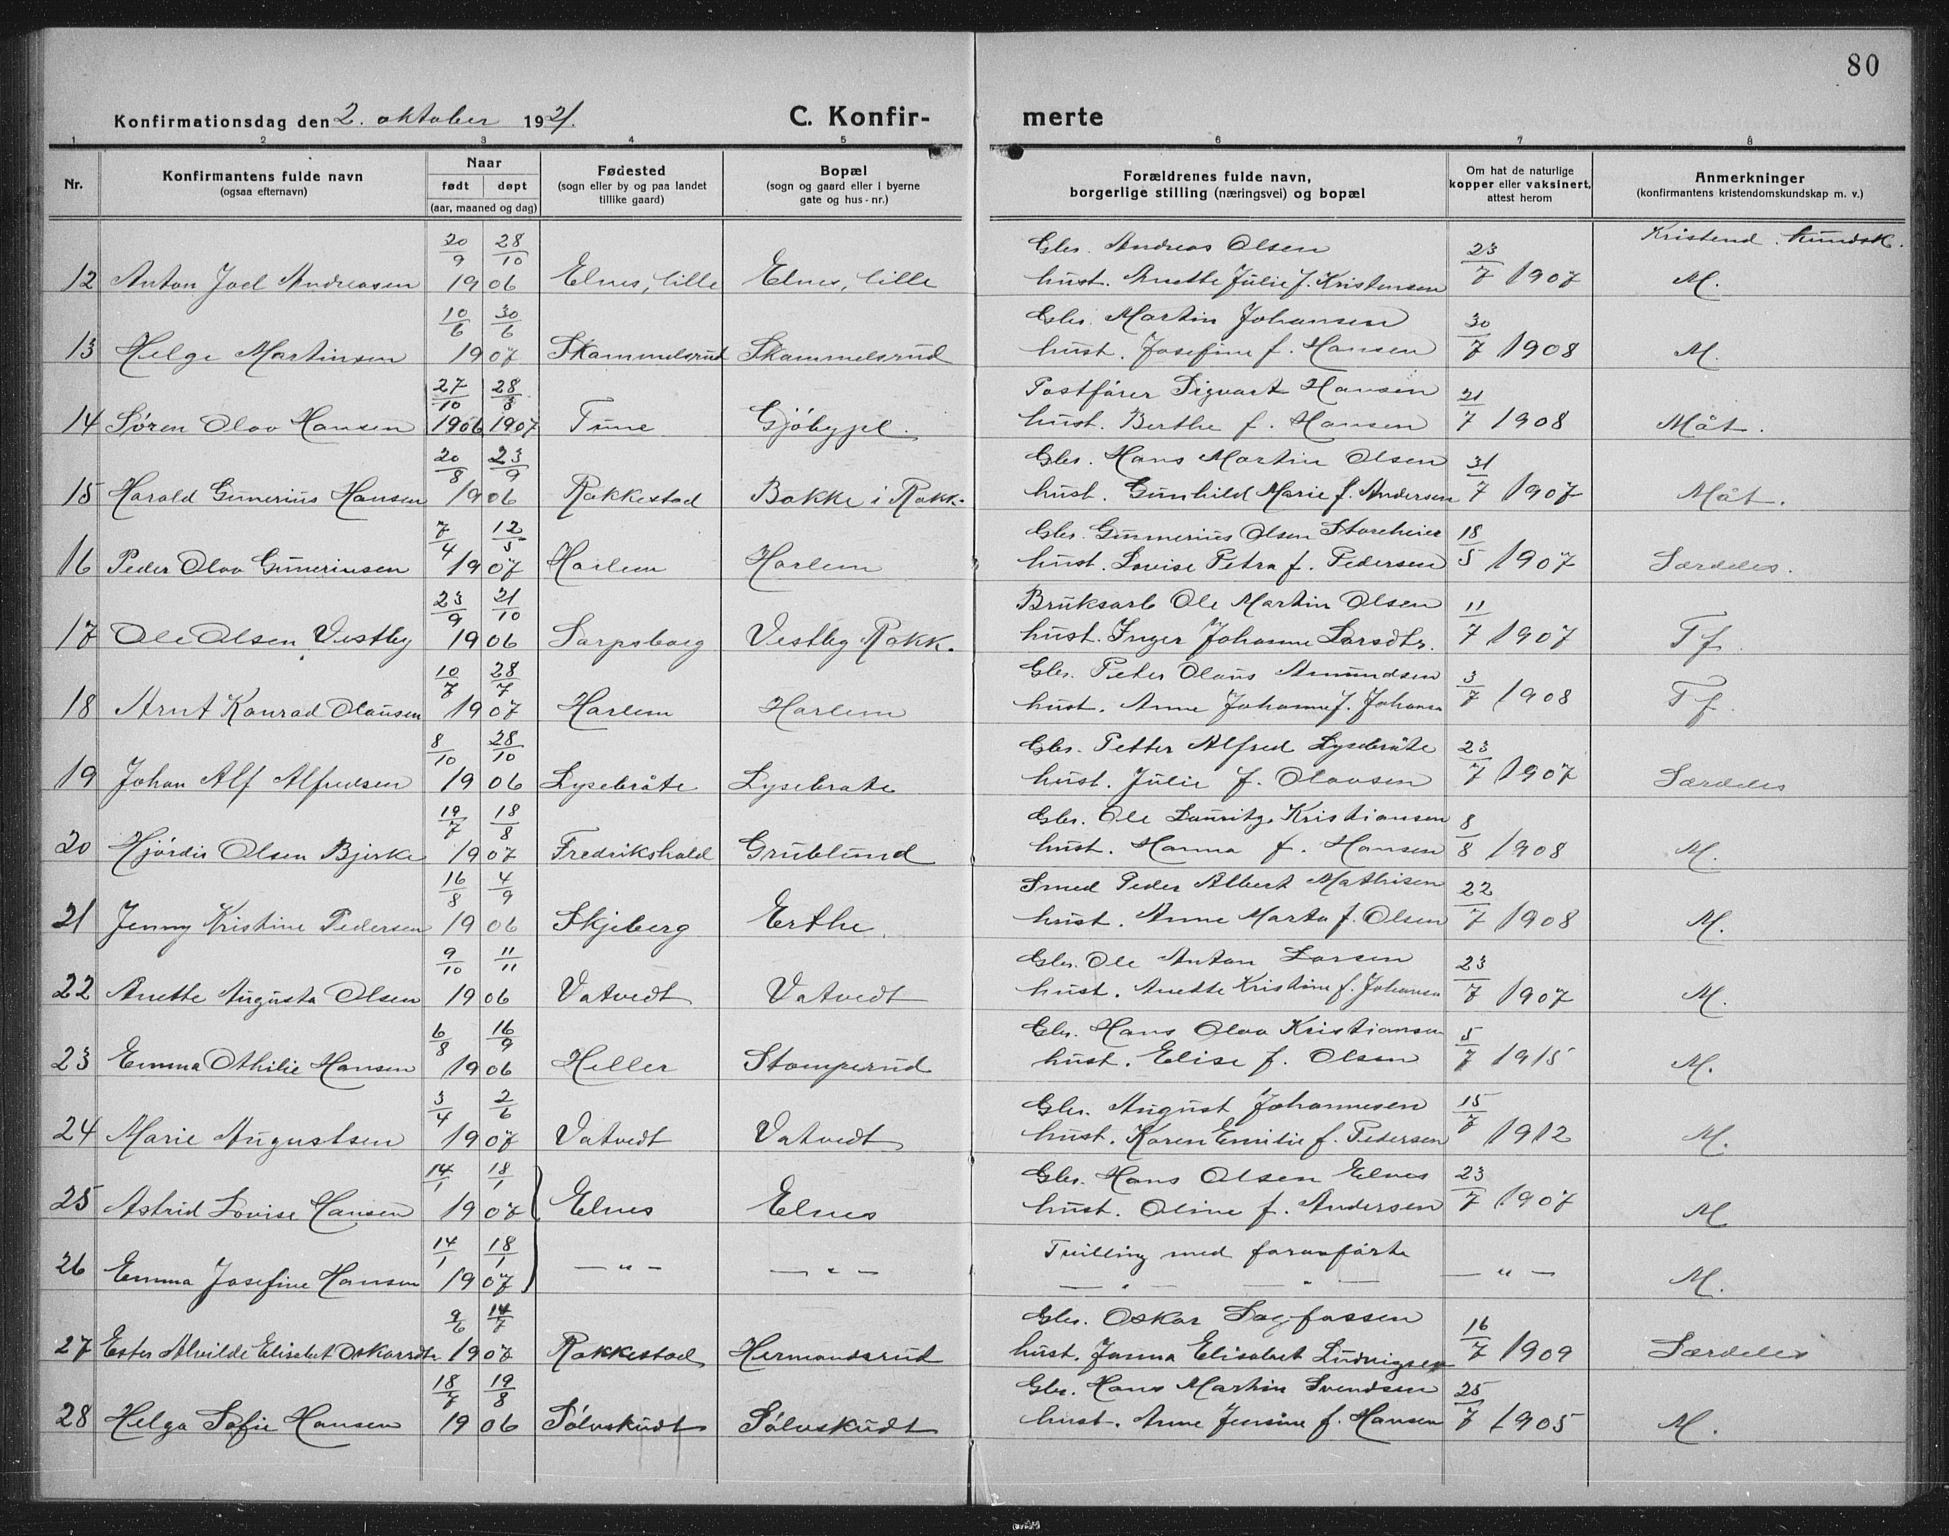 80
Konfirmationsdag den 2. oktober 1921. C. Konfirmerte
1 2 3 4 5 6 7 8
Nr. Konfirmantens fulde navn (ogsaa efternavn) Naar født døpt (aar, maaned og dag) Fødested (sogn eller by og paa landet tillike gaard) Bopæl (sogn og gaard eller i byerne gate og hus-nr.) Forældrenes fulde navn, borgerlige stilling (næringsvei) og bopæl Om hat de naturlige kopper eller vaksinert, attest herom Anmerkninger (konfirmantens kristendomskundskap m. v.)
Kristend. kundsk.
20/9 28/10 Gbr. Andreas Olsen
12 Anton Joel Andreasen 1906 Elnes, lille Elnes, lille hust. Anette Julie f. Kristensen 23/7 1907 M.
10/6 30/6 Gbr. Martin Johansen
13 Helge Martinsen 1907 Skammelsrud Skammelsrud hust. Josefine f. Hansen 30/7 1908 M.
27/10 28/3 Postfører Sigvart Hansen
14 Søren Olav Hansen 1906 1907 Tune Gjøbypl. hust. Berthe f. Hansen 21/7 1908 Måt.
20/8 23/9 Gbr. Hans Martin Olsen
15 Harald Gunerius Hansen 1906 Rakkestad Bakke i Rakk. hust. Gunhild Marie f. Andersen 31/7 1907 Måt.
7/4 12/5 Gbr. Gunnerius Olsen Storeheier
16 Peder Olav Guneriusen 1907 Harlem Harlem hust. Lovise Petra f. Pedersen 18/5 1907 Særdeles.
23/9 21/10 Bruksarb Ole Martin Olsen
17 Ole Olsen Vestby 1906 Sarpsborg Vestby Rakk. hust. Inger Johanne Larsdtr. 11/7 1907 Tf.
10/7 28/7 Gbr. Peter Olaus Amundsen
18 Arnt Konrad Olausen 1907 Harlem Harlem hust. Anne Johanne f. Johansn 3/7 1908 Tf.
8/10 28/10 Gbr. Petter Alfred Lysebråte
19 Johan Alf Alfredsen 1906 Lysebråte Lysebrate hust. Julie f. Olavsen 23/7 1907 Særdeles
19/7 18/8 Gbr. Ole Lauritz Kristiansen
20 Hjørdis Olsen Bjerke 1907 Fredrikshald Grublund hust. Hanna f. Hansen 8/8 1908 M.
16/8 4/9 Smed Peder Albert Mathisen
21 Jenny Kristine Pedersen 1906 Skjeberg Erthe. hust. Anne Marta f. Olsen 22/7 1908 M.
9/10 11/11 Gbr. Ole Anton Larsen
22 Anette Augusta Olsen 1906 Vatvedt Vatvedt hust. Anette Kristine f. Johansn 23/7 1907 M.
6/8 16/9 Gbr. Hans Olav Kristiansen
23 Emma Othilie Hansen 1906 Heller Stomperud hust. Elise f. Olsen 5/7 1915 M.
3/4 2/6 Gbr. August Johannesen
24 Marie Augustsen 1907 Vatvedt Vatvedt hust. Karen Emilie f. Pedersen 15/7 1912 M.
14/1 18/1 Gbr. Hans Olsen Elnes
25 Astrid Lovise Hansen 1907 Elnes Elnes hust. Oline f. Andersen 23/7 1907 M
14/1 18/1 Tvilling med foranførte
26 Emma Josefine Hansen 1907 — " — — " — — " — — " — — " — M.
9/6 14/7 Gbr. Oskar Sagfossen
27 Ester Alvilde Elisabet Oskarsdtr 1907 Rakkestad Hermandsrud hust. Janna Elisabet Ludvigsen 16/7 1909 Særdeles
18/7 19/8 Gbr. Hans Martin Svendsen
28 Helga Sofie Hansen 1906 Sølvskudt Sølvskudt hust. Anne Jensine f. Hansen 25/7 1905 M.